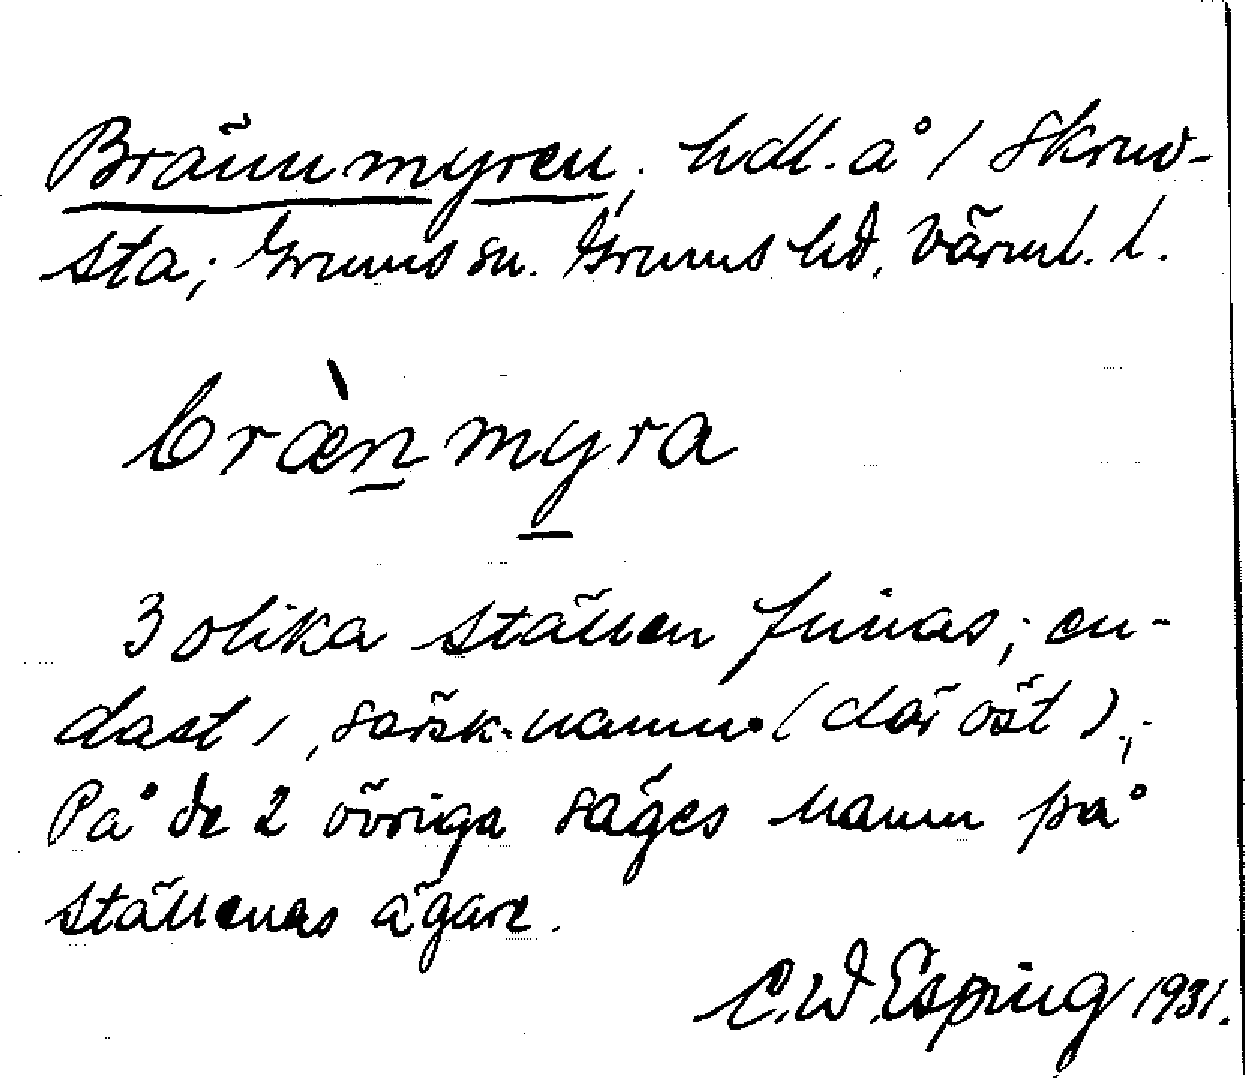 Brännmyren, hdl. å 1 Skruv-
sta; Grums sn. Grums hd, Värml. l.
bræ̀n myra
3 olika ställen finnas; en-
dast 1, särsk. namn (där öst);
På de 2 övriga säges namn på
ställenas ägare.
C.W. Esping 1931.